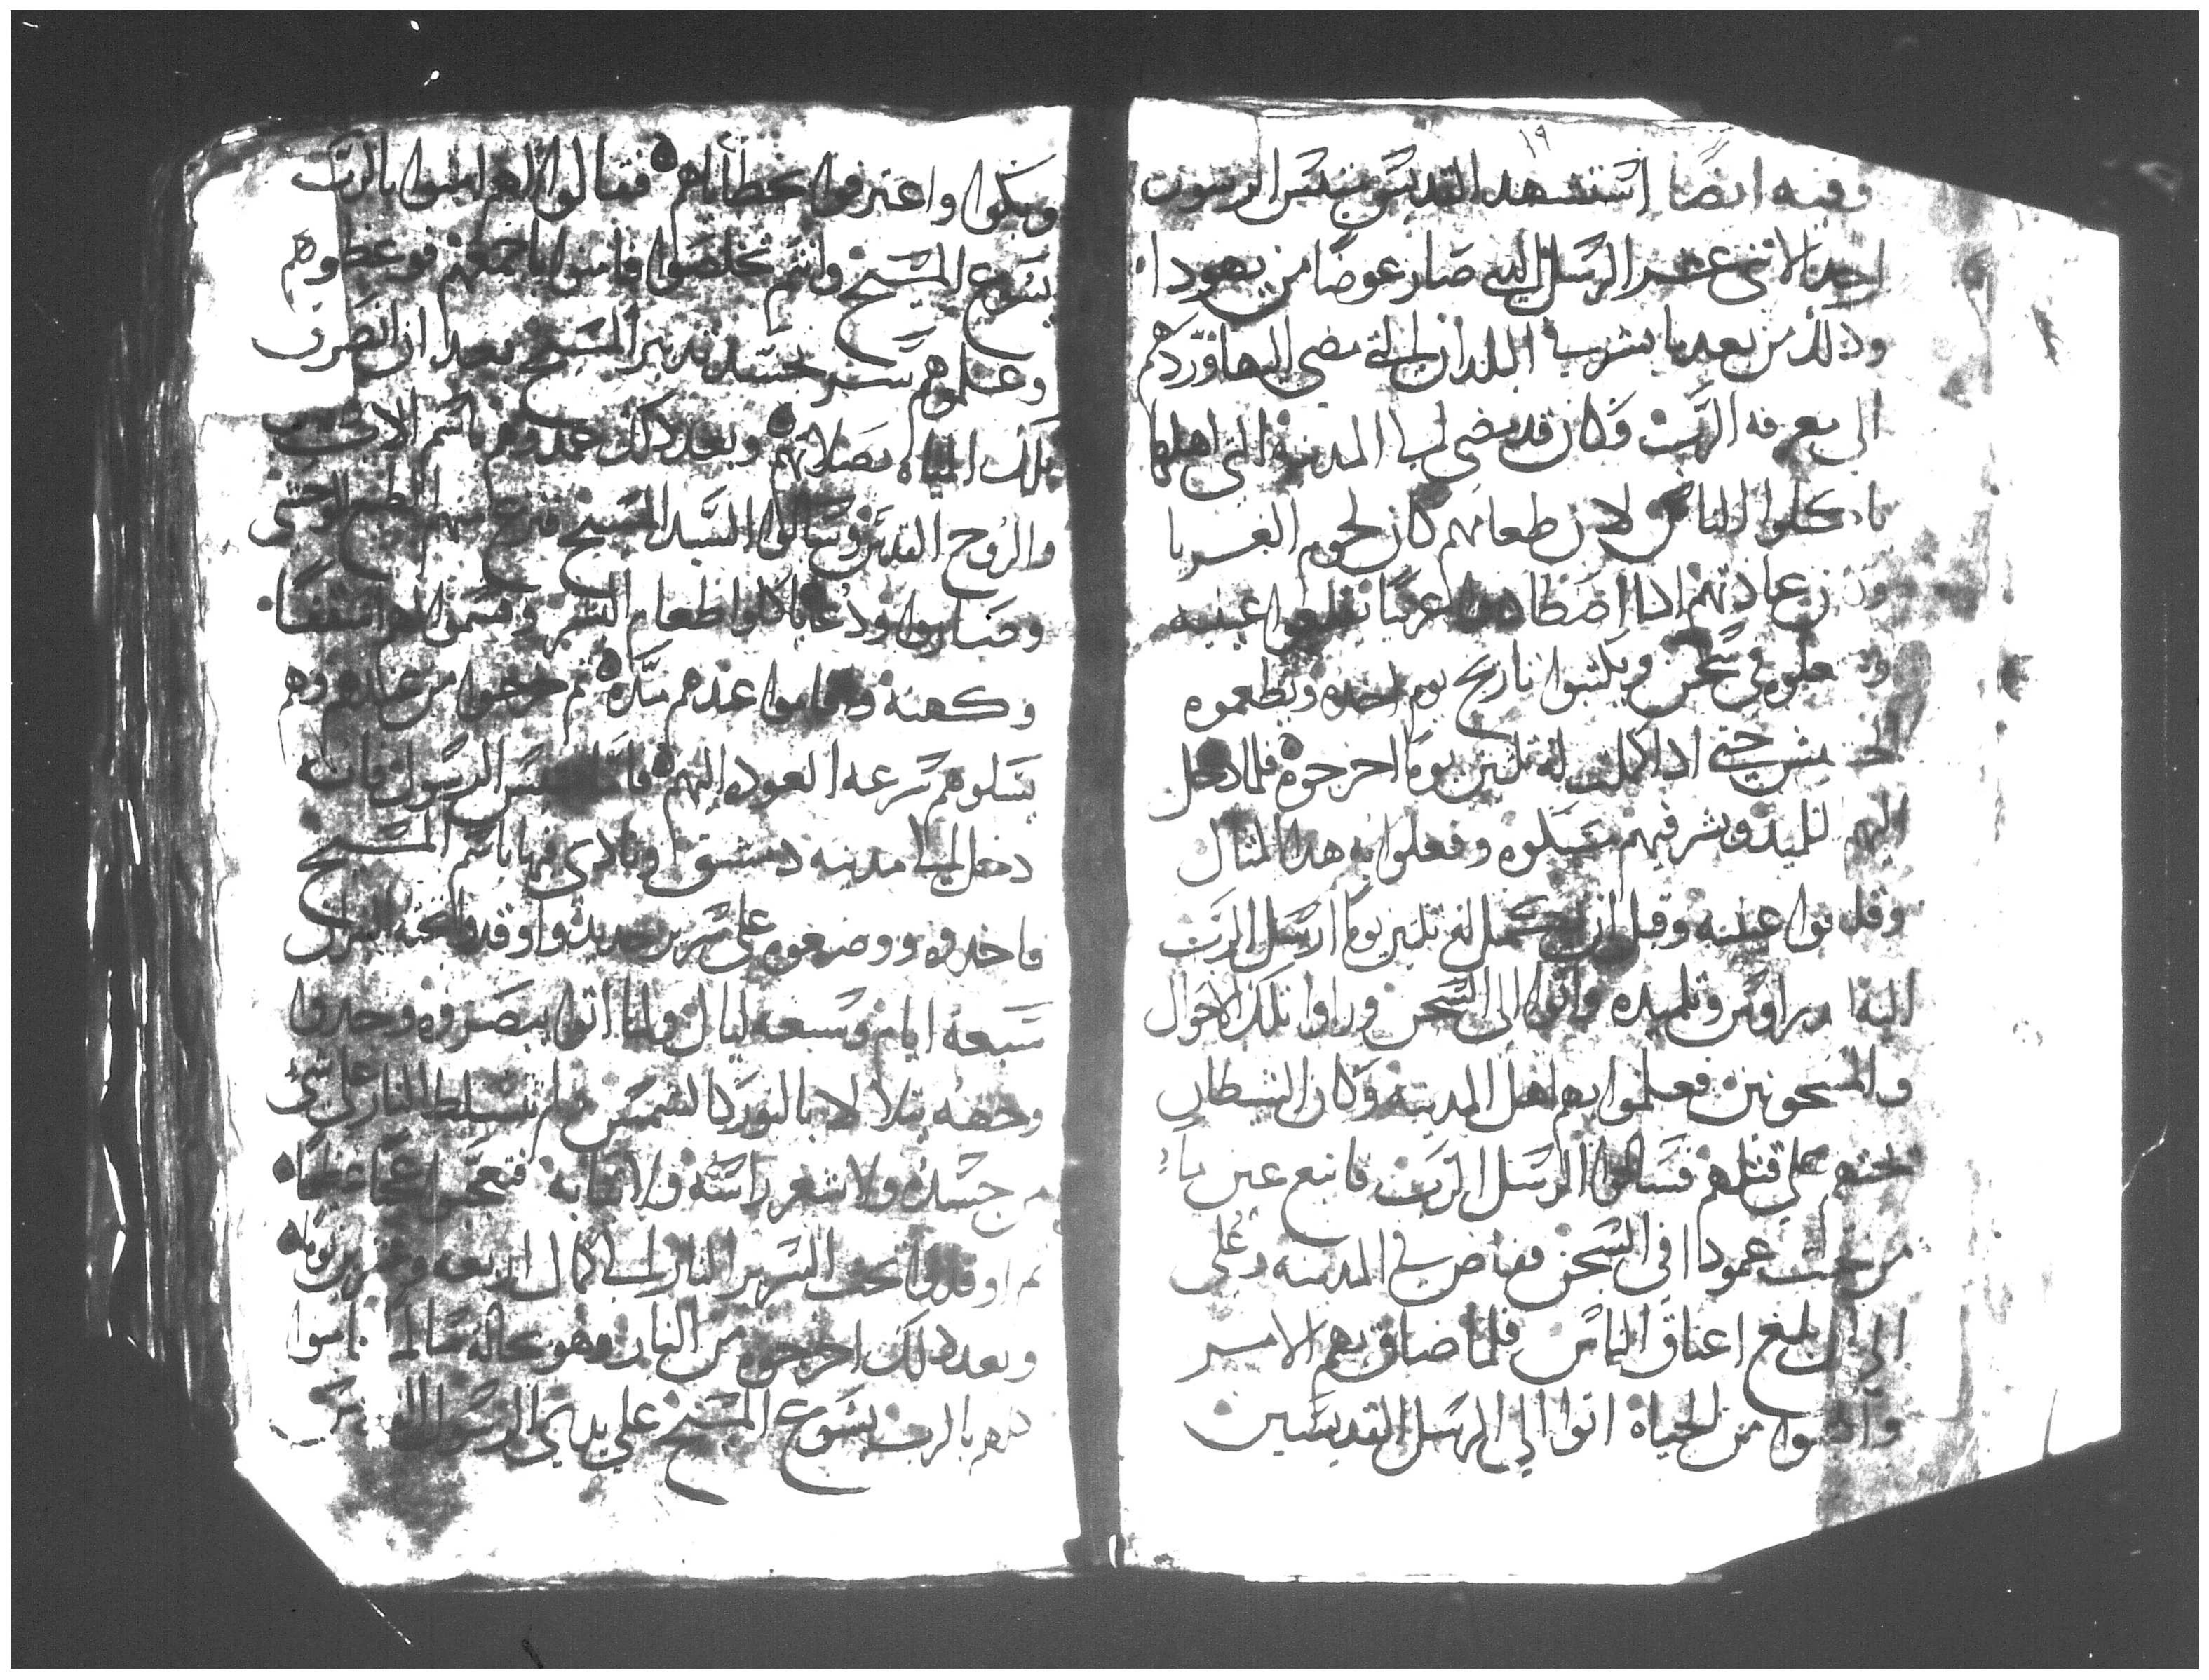 ١٩
وفيه ايضًا استشهد القديس متيس الرسول
احد الاثنى عشر الرسل الدي صار عوضًا من يهودا
ودلك من بعد ما بشر في البلدان التي مضى اليها وردهم
الى معرفة الرب وكان قد مضى الى المدينة التى اهلها
ياكلوا الناس لان طعامهم كان لحوم الغربا
ومن عادتهم ادا اصطادوا غريبًا يقلعوا عينيه
في سجن ويكتبوا تاريخ يوم اخده ويطعموه
الحشيش حتى ادا كملت له تلتين يومًا اخرجوه فلما دخل
اليهم التلميذ وبشر فيهم مسكوه وفعلوا به هدا المثال
وقلعوا عينيه وقبل ان تكمل له تلتين يومًا ارسل الرب
اليه اندراوس وتلميده واتوا الى السجن وراوا تلك الاحوال
والمسجونين فعلموا بهم اهل المدينة وكان الشيطان
يحتهم على قتلهم فسالوا الرسل الرب فانبع عين ما
من تحت عمود افي السجن ففاض في المدينة وعلى
الى ان بلغ اعناق الناس فلما ضاق بهم الامر
وايسوا من الحياة اتوا الى الرسل القديسين
وبكوا واعترفوا بخطاياهم فقالوا لهم امنوا بالرب
يسوع المسيح وانتم تخلصوا فامنوا باجمعهم فوعظوهم
وعلموهم سر تجسد تدبير المسيح بعد ان انصرف
تلك المياه بصلاتهم وبعد دلك عمدوهم باسم الاب
والروح القدس وسالوا السيد المسيح فنزع منهم الطبع الوحشى
وصاروا ودعا ياكلوا طعام البشر وقسموا لهم اسقفًا
وكهنة واقاموا عندهم مدة ثم خرجوا من عندهم وهم
يسلوهم سرعه العوده اليهم فاما متيس الرسول فانه
دخل الى مدينة دمشق ونادى فيها باسم المسيح
فاخدوه ووضعوه على سرير حديد واوقدوا تحته النيران
سبعة ايام وسبعه ليال ولما اتوا يبصروه وجدوا
وجهه يتلالا بالنور كالشمس ولم تتسلط النار على شى
من جسده ولا شعر راسه ولا ثيابه فتعجبوا عجبًا عظيمًا
ثم اوقدوا تحت السرير النار الى كمال اربعه وعشرين يومًا
وبعد دلك اخرجوه من النار وهو بحاله سالم فامنوا
كلهم بالرب يسوع المسيح على يدي الرسول